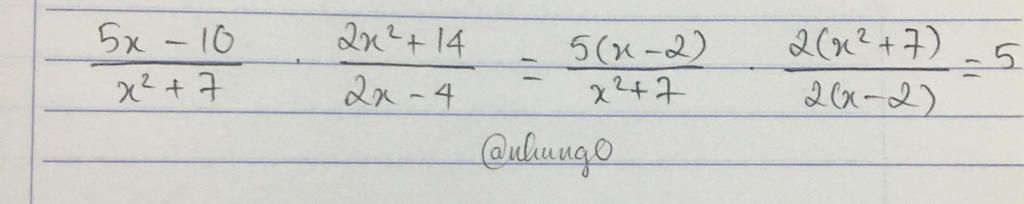 (5x - 10)/(x² + 7) · (2x² + 14)/(2x - 4) = 5(x - 2)/(x² + 7) · 2(x² + 7)/2(x - 2) = 5
@nhung0